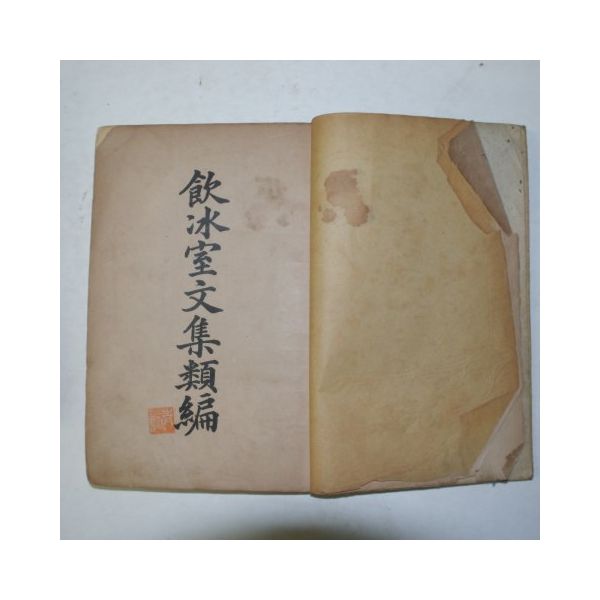 飲冰室文集類編